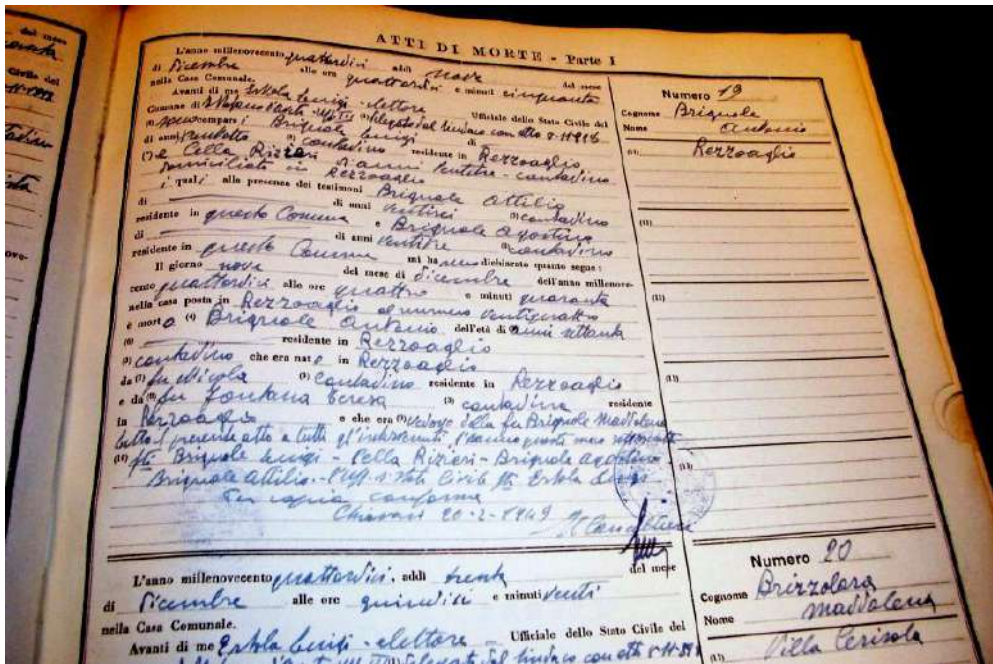 del mese
Civile del
ATTI DI MORTE - Parte I
L'anno millenovecento quattordici addì nove del mese
di Dicembre alle ore quattordici e minuti cinquanta
nella Casa Comunale.
Avanti di me Estola Luigi - elettore
Comune di Ufficiale dello Stato Civile del
delegato dal Sindaco con atto 8-11-
comparsi Brignole Luigi di
di anni trentotto (2) contadino residente in Rezzoaglio
(3) e Cella Rizieri d'anni ventitre - contadino
domiciliato in Rezzoaglio
i quali alla presenza dei testimoni Brignole Attilio
di di anni ventisei (2) contadino
residente in questo Comune e Brignole Agostino
di di anni ventitre (2) contadino
residente in questo Comune mi hanno dichiarato quanto segue:
Il giorno nove del mese di Dicembre dell'anno millenove-
cento quattordici alle ore quattro e minuti quaranta
nella casa posta in Rezzoaglio al numero ventiquattro
è morto (4) Brignole Antonio dell'età di anni settanta
(6) residente in Rezzoaglio
(2) contadino che era nato in Rezzoaglio
da (7) fu Nicola (3) contadino residente in Rezzoaglio
e da (8) fu Fontana Teresa (3) contadina residente
in Rezzoaglio e che era (9) vedovo della fu Brignole Maddalena
letto il presente atto a tutti gl'intervenuti l'hanno questi meco sottoscritto
(10) fti Brignole Luigi - Cella Rizieri - Brignole Agostino
Brignole Attilio - l'uff. di Stato Civile fto Estola Luigi
Per copia conforme
Chiavari 20-2-1949 Il Cancelliere
Numero 19
Cognome Brignole
Nome Antonio
(11) Rezzoaglio
(13)
L'anno millenovecento quattordici, addì trenta del mese
di Dicembre alle ore quindici e minuti venti
nella Casa Comunale.
Avanti di me Estola Luigi - elettore - Ufficiale dello Stato Civile del
delegato dal Sindaco con atto 8-11-
Numero 20
Cognome Brizzolara
Nome Maddalena
Villa Cerisola